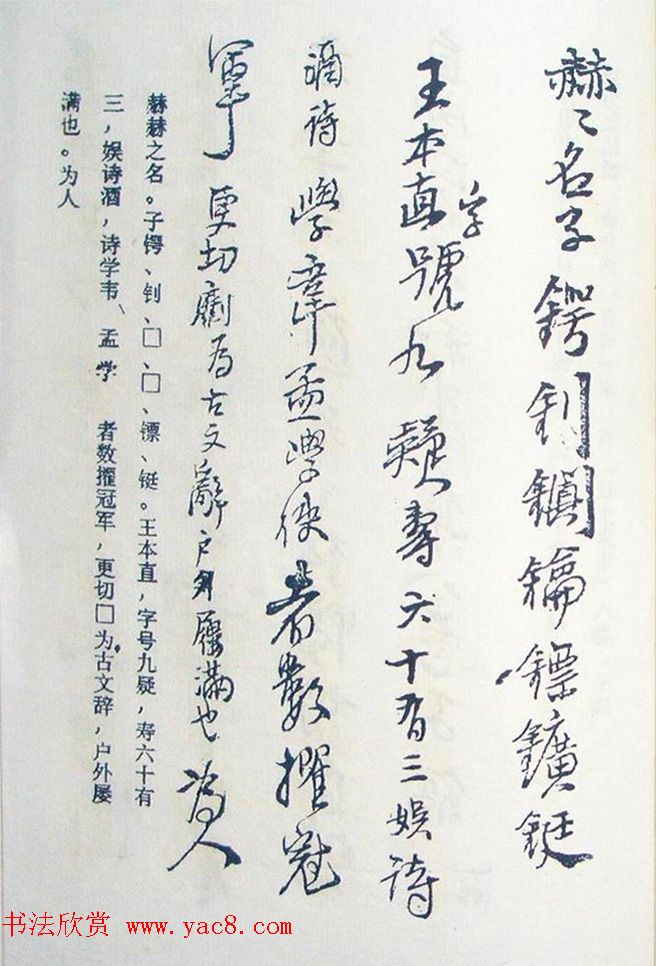 赫〻名子鍔釗鑰鏢鑛鋌
王本直字號九疑壽六十有三娱詩
酒詩學韋孟學徒者數擢冠
軍更切劘為古文辭户外屨滿也為人
赫赫之名。子锷、钊、□、□、镖、铤。王本直，字号九疑，寿六十有
三，娱诗酒，诗学韦、孟学 者数擢冠军，更切□为古文辞，户外屡
满也。为人
书法欣赏 www.yac8.com